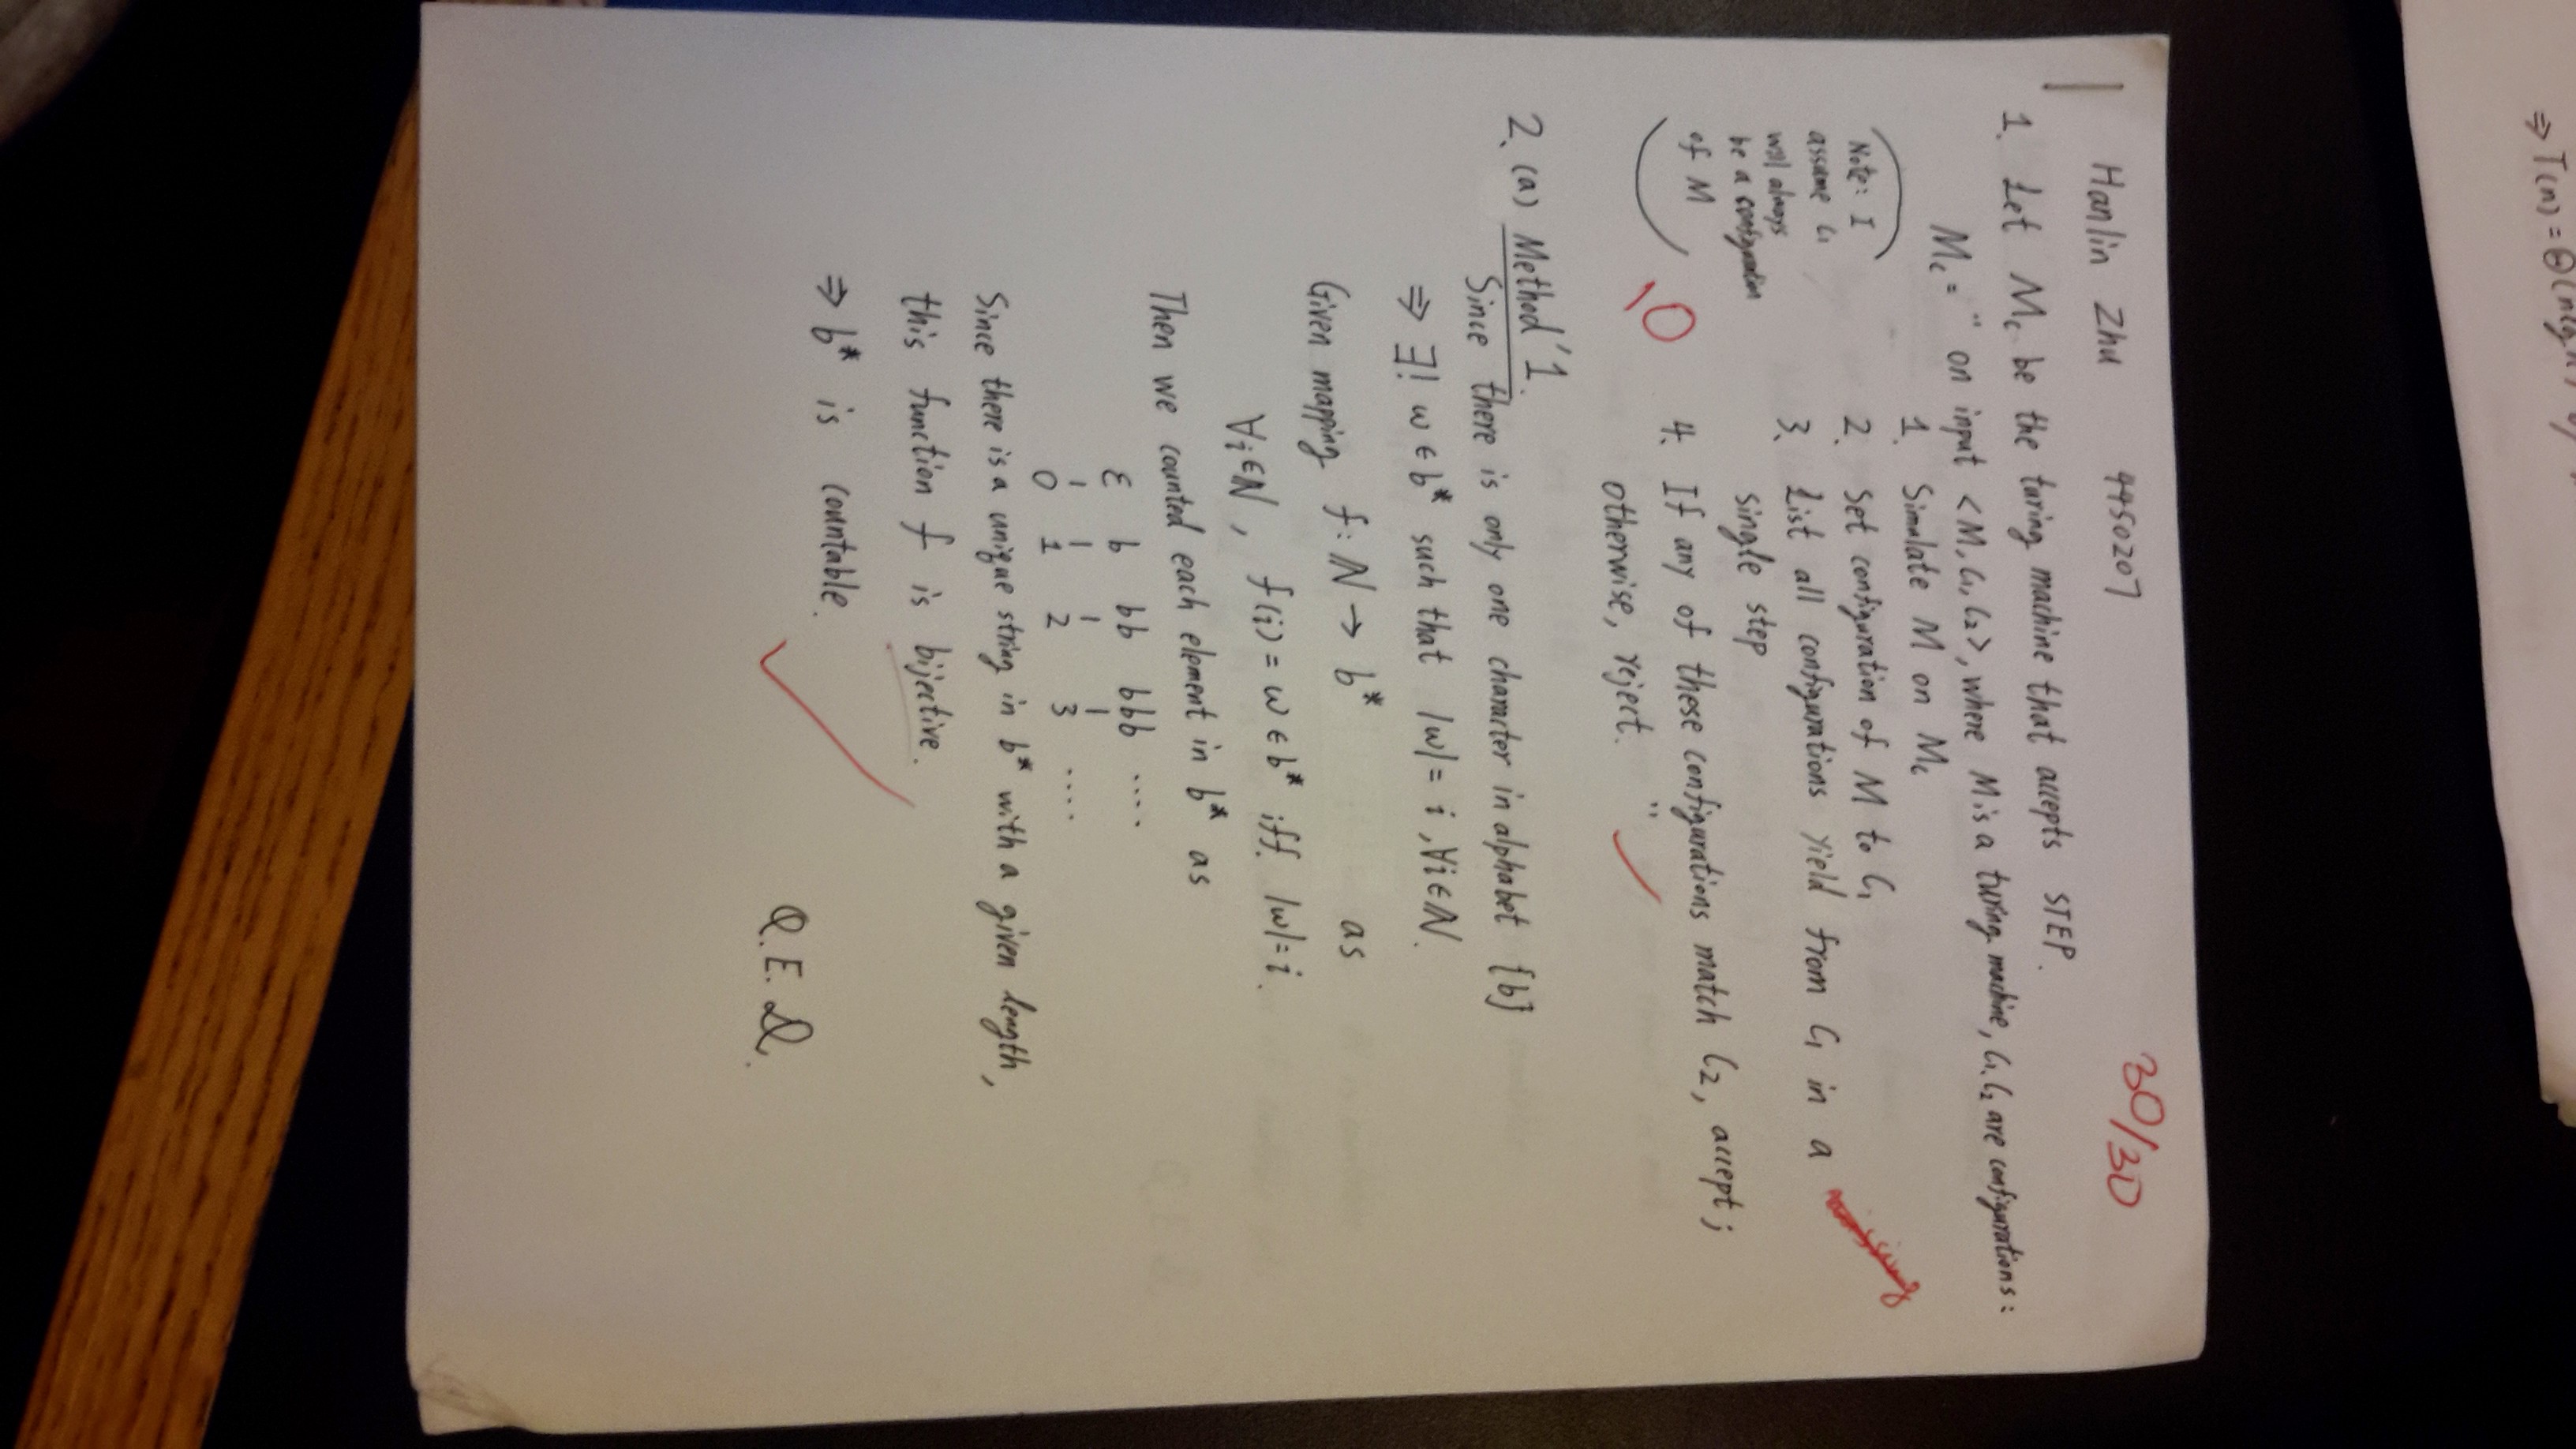 Hanlin Zhu 4450207 30/30
1. Let Mc be the turing machine that accepts STEP.
Mc = " on input <M, C1, C2>, where M is a turing machine, C1, C2 are configurations:
1. Simulate M on Mc
2. Set configuration of M to C1
3. List all configurations yield from C1 in a
single step
4. If any of these configurations match C2, accept;
otherwise, reject. "
Note: I
assume C1
will always
be a configuration
of M
10
2. (a) Method 1.
Since there is only one character in alphabet {b}
⇒ ∃! w ∈ b* such that |w| = i, ∀i ∈ N.
Given mapping f: N → b* as
∀i ∈ N, f(i) = w ∈ b* iff |w| = i.
Then we counted each element in b* as
ε b bb bbb ....
| | | |
0 1 2 3 ....
Since there is a unique string in b* with a given length,
this function f is bijective.
⇒ b* is countable.
Q.E.D.